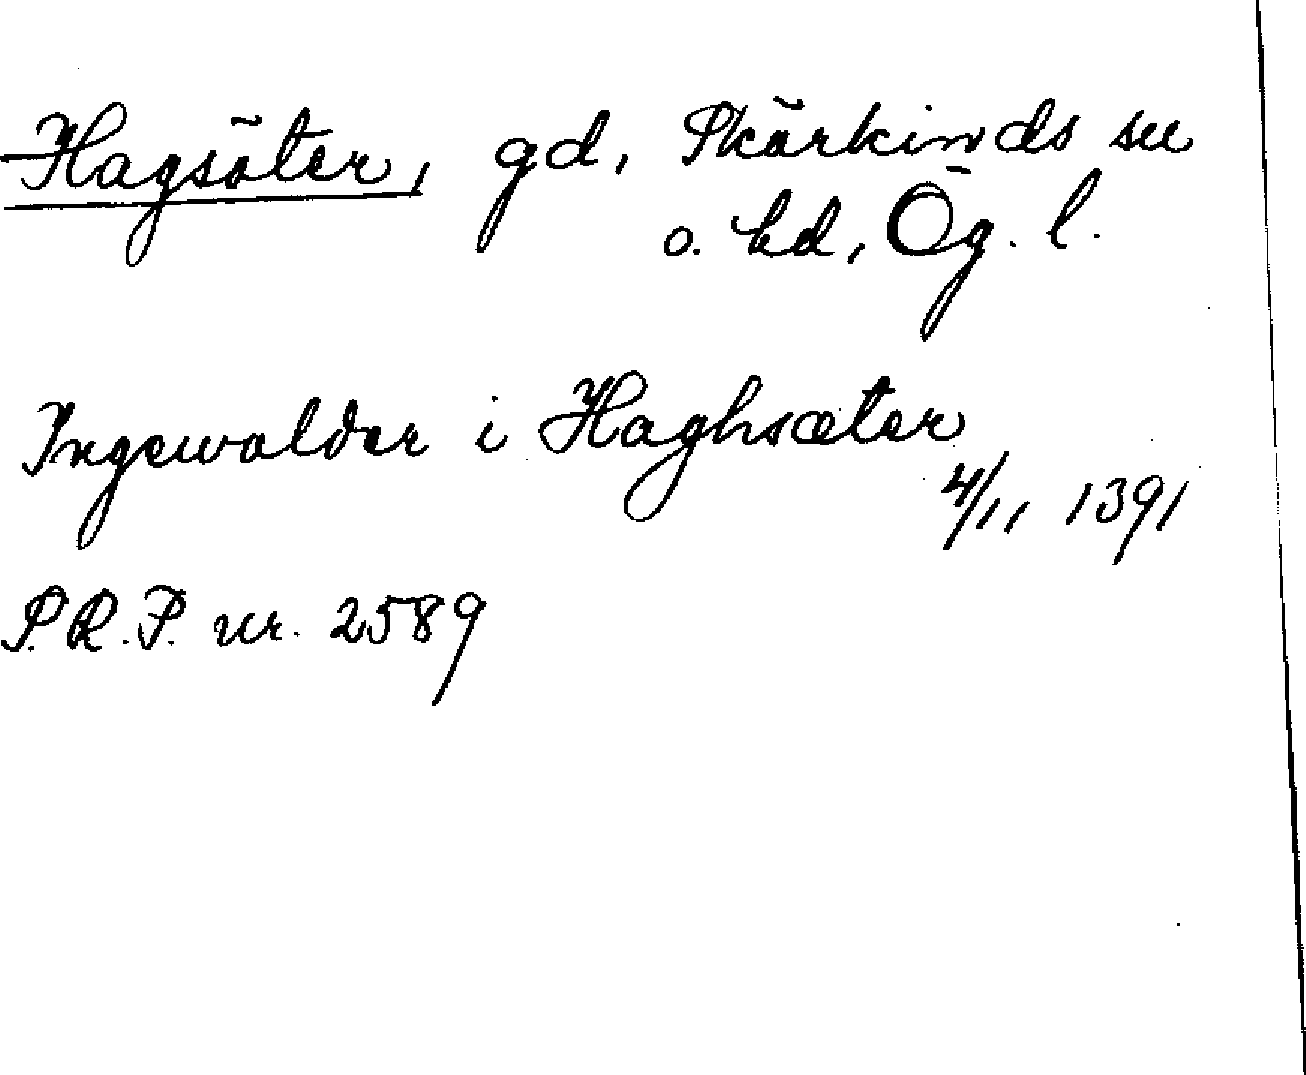 Hagsäter, gd, Skärkinds sn
o. hd, Ög. l.
Ingewalder i Haghsæter
4/11 1391
S.R.P. nr. 2589